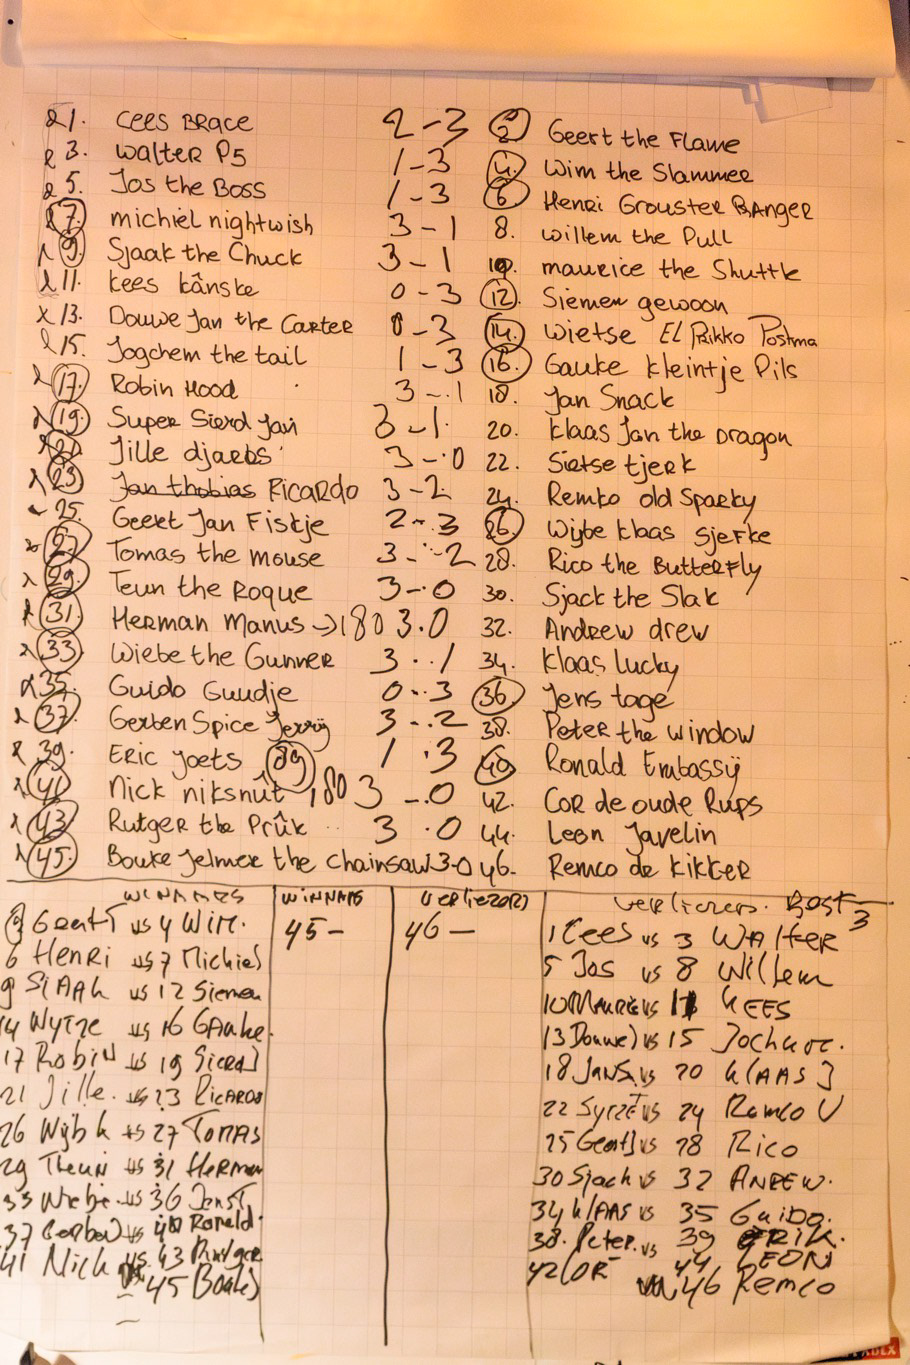 1. Cees Brace 2-3 2. Geert the Flame
3. Walter P5 1-3 4. Wim the Slammer
5. Jos the Boss 1-3 6. Henri Grouster Banger
7. michiel nightwish 3-1 8. Willem the Pull
9. Sjaak the Chuck 3-1 10. maurice the Shuttle
11. Kees kânske 0-3 12. Siemen gewoon
13. Douwe Jan the Carter 0-3 14. Wietse El Rikko Postma
15. Jogchem the tail 1-3 16. Gauke kleintje Pils
17. Robin Hood 3-1 18. Jan Snack
19. Super Sierd Jan 3-1 20. Klaas Jan the Dragon
21. Jille djaebs 3-0 22. Sietse tjerk
23. Jan thobias Ricardo 3-2 24. Remko old Sparky
25. Geert Jan Fiskje 2-3 26. Wijbe Klaas Sjefke
27. Tomas the mouse 3-2 28. Rico the Butterfly
29. Teun the Roque 3-0 30. Sjack the Slak
31. Herman Manus → 180 3.0 32. Andrew drew
33. Wiebe the Gunner 3-1 34. Klaas lucky
35. Guido Guudje 0-3 36. Jens tage
37. Gerben Spice Jerrij 3-2 38. Peter the window
39. Eric joets 89 1-3 40. Ronald Embassÿ
41. Nick niksnût 180 3-0 42. Cor de oude Rups
43. Rutger the Prûk 3-0 44. Leon Javelin
45. Bouke Jelmer the Chainsaw 3-0 46. Remco de Kikker
WINNAARS WINNAARS VERLIEZERS Verliezers. BEST 3
2 Geert vs 4 Wim. 45- 46- 1 Cees vs 3 Walter
6 Henri vs 7 Michiel 5 Jos vs 8 Willem
9 Sjaak vs 12 Siemen 10 Maurice vs 11 Kees
14 Wytze vs 16 Gauke. 13 Douwe J vs 15 Jochum.
17 Robin vs 19 Sierd J 18 Jan S. vs 20 Klaas J
21 Jille. vs 23 Ricardo 22 Sytze T vs 24 Remco
26 Wijb k vs 27 Tomas 25 Geert J vs 28 Rico
29 Theun vs 31 Herman 30 Sjack vs 32 Andrew.
33 Wiebe vs 36 Jens T 34 Klaas vs 35 Guido.
37 Gerben vs 40 Ronald. 38. Peter. vs 39 Erik.
41 Nick vs 43 Rutger 42 Cor 44 Leon
vs 45 Bouke J 46 Remco